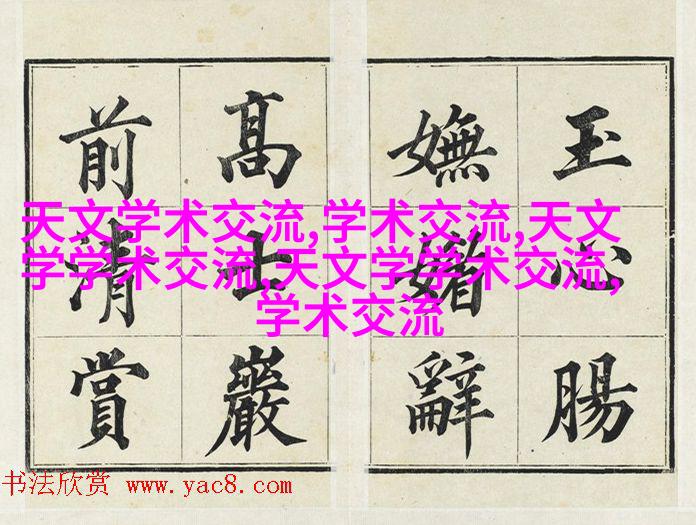 玉心腸
嫵媚辭
髙士巖
前清賞
天文学术交流,学术交流,天文
学学术交流,天文学学术交流,
学术交流
书法欣赏 www.yac8.com